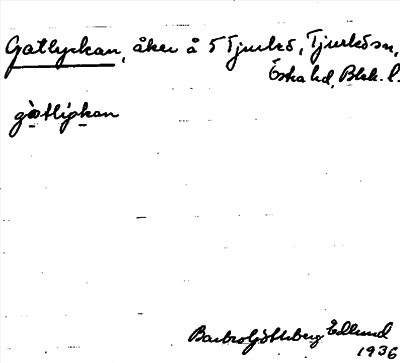 Gatlyckan, åker å 5 Tjurkö, Tjurkösn,
Östra hd, Blek. l.
gàtlýkan
Barbro Götlberg Edlund
1936